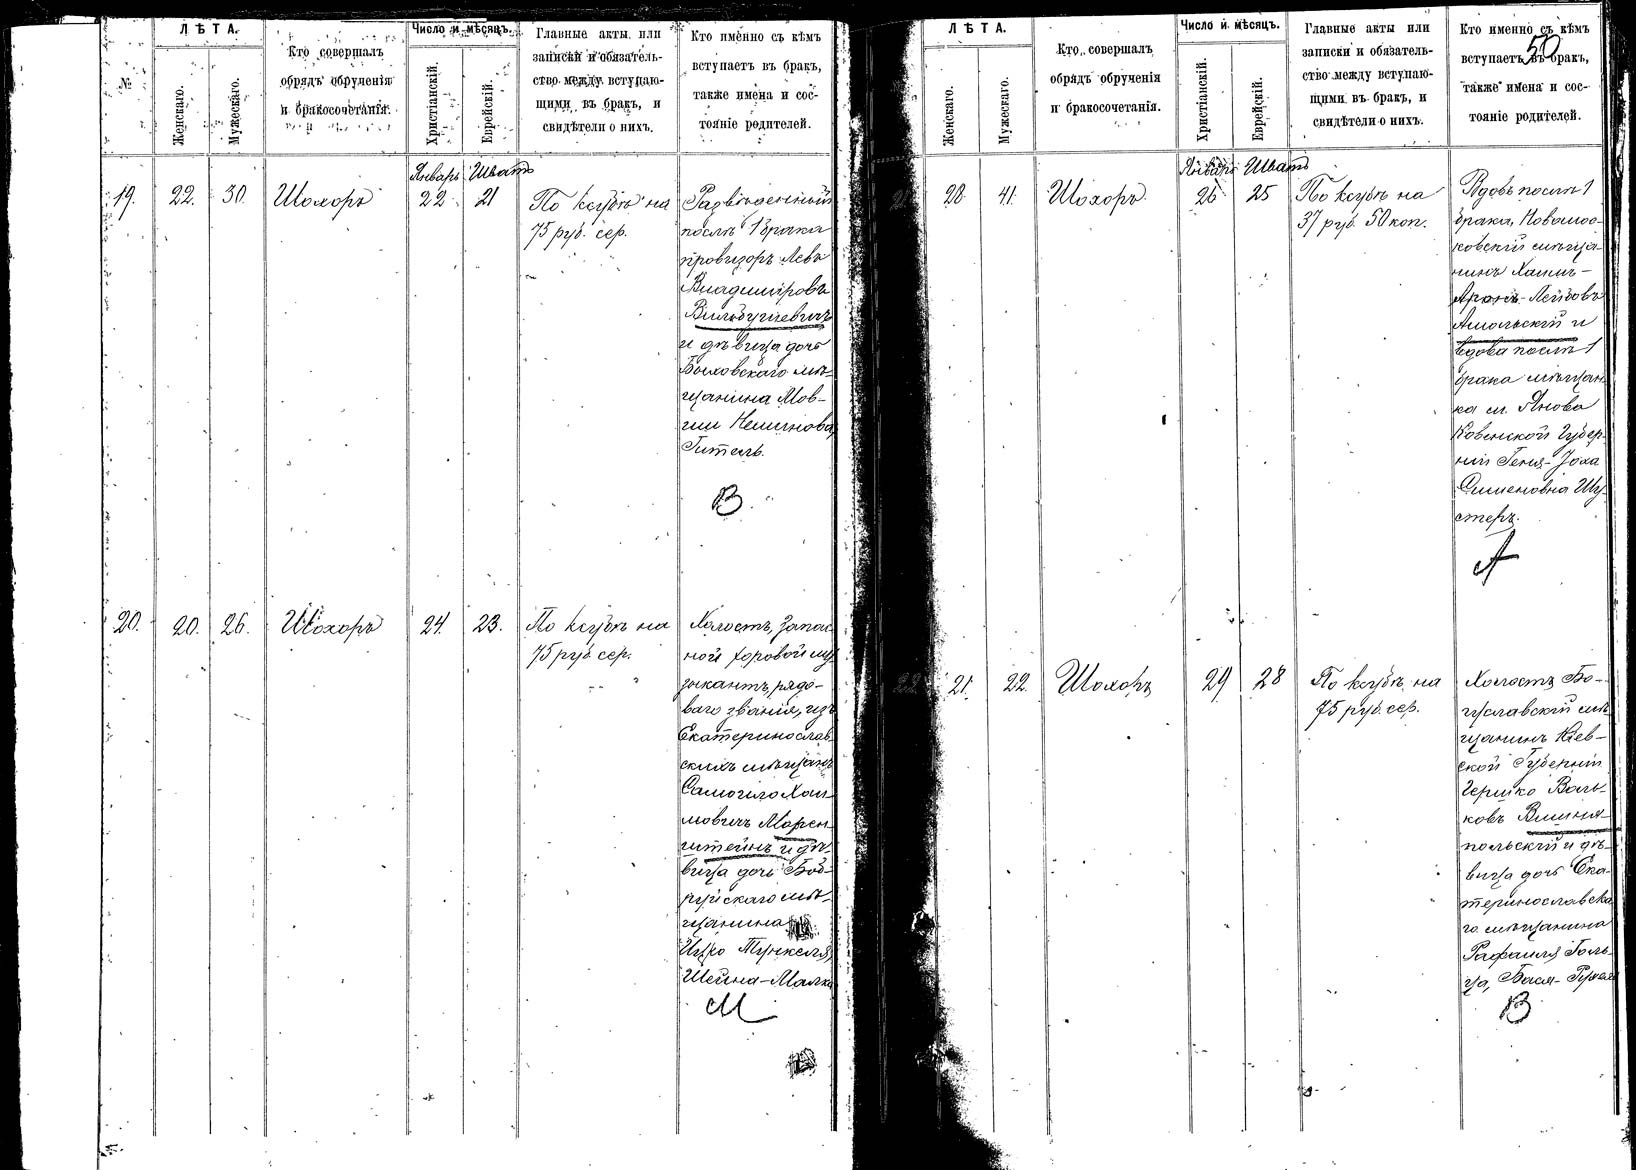 №
ЛѢТА.
Женскаго.
Мужескаго.
Кто совершалъ
обрядъ обрученія
и бракосочетанія.
Число и мѣсяцъ.
Христіанскій.
Еврейскій.
Главные акты или
записки и обязатель-
ство между вступаю-
щими въ бракъ, и
свидѣтели о нихъ.
Кто именно съ кѣмъ
вступаетъ въ бракъ,
также имена и сос-
тояніе родителей.
Январь Шватъ
19. 22. 30. Шохоръ 22 21
По ксубѣ на
75 руб. сер.
Разведенный
послѣ 1 брака
провизоръ Левъ
Владиміровъ
Вильбушевичъ
и дѣвица дочь
Быховскаго мѣ-
щанина Мов-
ши Немцнова,
Гитель.
В
20. 20. 26. Шохоръ 24 23.
По ксубѣ на
75 руб. сер.
Холостъ, запас-
ной хоровой му-
зыкантъ, рядо-
ваго званія, изъ
Екатеринослав
скихъ мѣщанъ
Самоило Хаи-
мовичъ Морен-
штейнъ и дѣ-
вица дочь Боб-
руйскаго мѣ-
щанина
Ицко Тункеля,
Шейна-Малка
М
50
ЛѢТА.
Женскаго.
Мужескаго.
Кто совершалъ
обрядъ обрученія
и бракосочетанія.
Число и мѣсяцъ.
Христіанскій.
Еврейскій.
Главные акты или
записки и обязатель-
ство между вступаю-
щими въ бракъ, и
свидѣтели о нихъ.
Кто именно съ кѣмъ
вступаетъ въ бракъ,
также имена и сос-
тояніе родителей.
Январь Шватъ
21 28. 41. Шохоръ 26 25
По ксубѣ на
37 руб. 50 коп.
Вдовъ послѣ 1
брака, Новомос-
ковскій мѣща-
нинъ Хаимъ-
Аронъ Лейбовъ
Амольскій и
вдова послѣ 1
брака мѣщан
ка м. Янова
Ковенской Губер-
ніи Геня-Іоха
Сименовна Шу-
стеръ.
А
22 21. 22. Шохоръ 29 28
По ксубѣ на
75 руб. сер.
Холостъ Бо-
гуславскій мѣ-
щанинъ Кіев-
ской Губерніи
Гершко Воль-
ковъ Вишня-
польскій и дѣ-
вица дочь Ека-
теринославска
го мѣщанина
Рафаиля Голь-
ца, Бася-
В